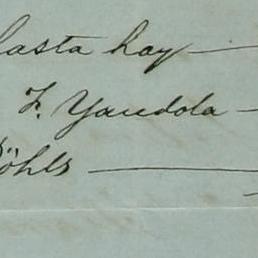 hasta hoy
F. Yandola
Böhls